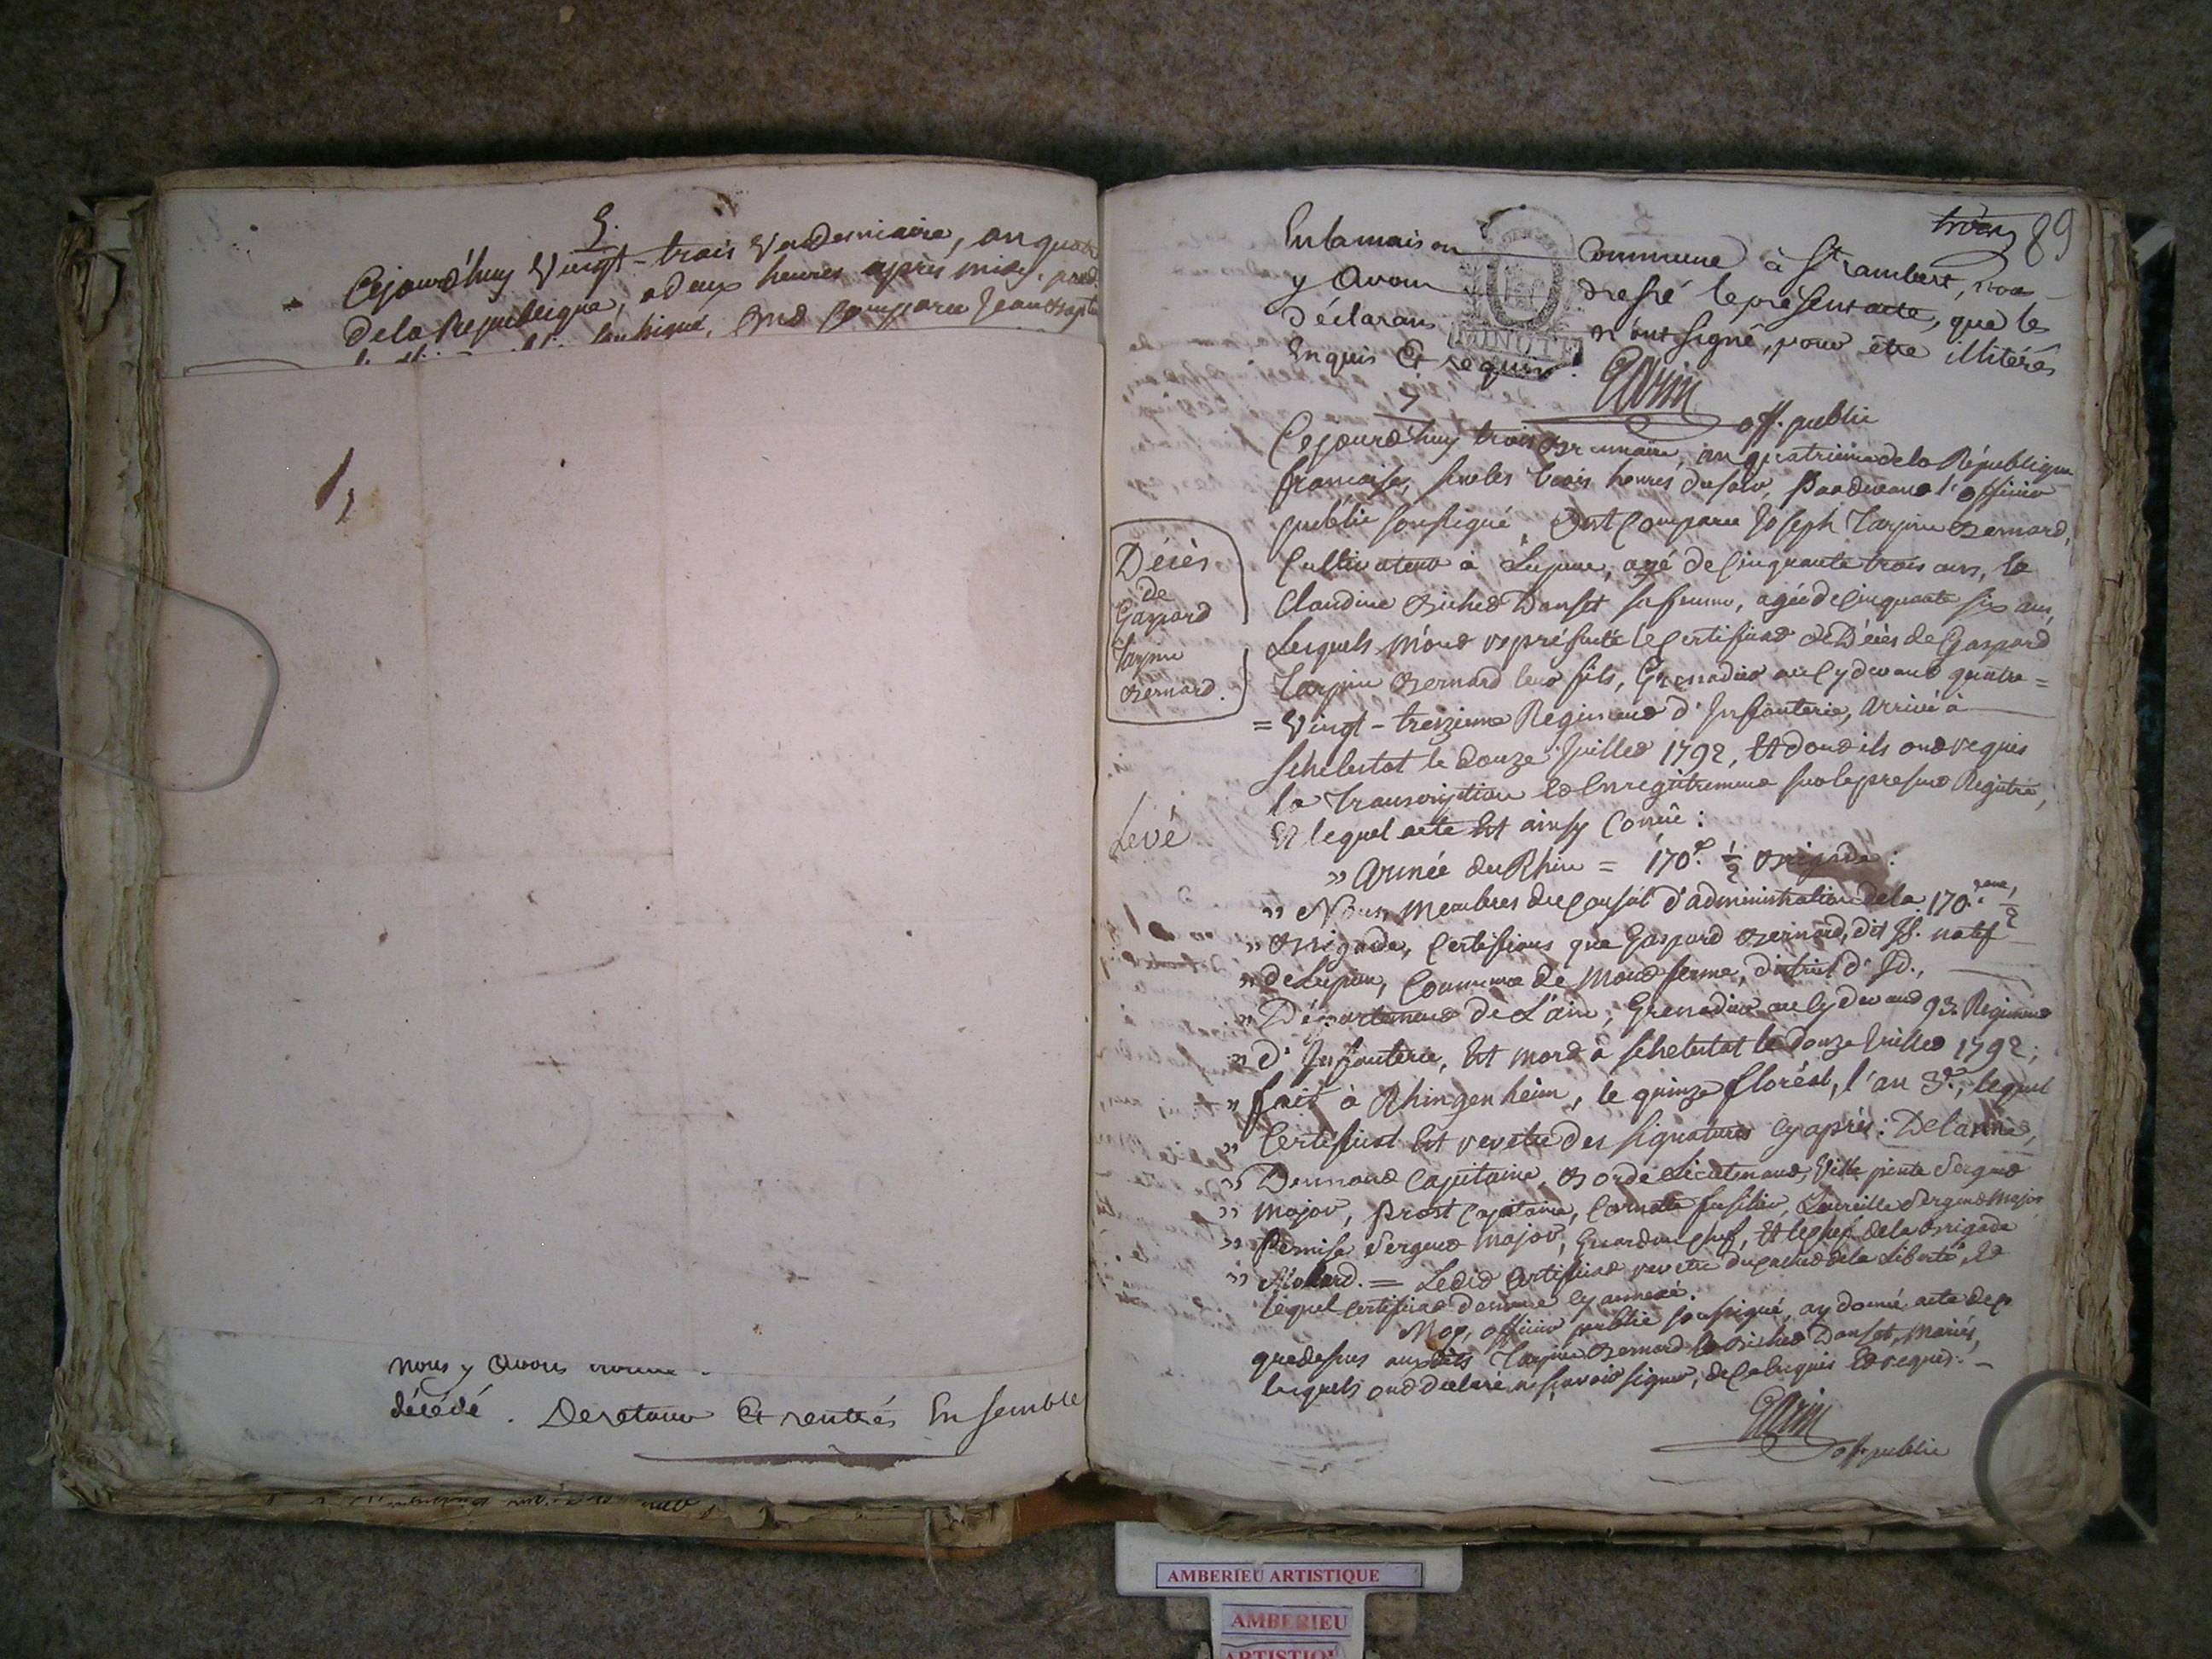 5.
Cejourd'huy Vingt-trois Vendemiaire, an quatre
de la République, a deux heures après midy, pard.
soussigné, Ond Comparu Jean Bapte
nous y avons
décédé. De retour Et rentrés En semble
trois 89
En la maison Commune à St rambert, nous
y Avons dressé le présent acte, que les
déclarans n'ont signé, pour être illitérés
Enquis Et requis.
MINUTE
off. public
Cejourd'huy trois Brumaire, an quatrieme de la République
francaise, sur les trois heures du soir, Pardevant l'officier
public soussigné, Est Comparu Joseph Tarpin Bernard,
Cultivateur à Lupieu, agé de Cinquante trois ans, Et
Claudine Bichod Danset sa femme, agée de Cinquante six ans,
Lesquels m'ond représenté le Certificad de Décès de Gaspard
Tarpin Bernard leur fils, Grenadier au Cydevand quatre=
=Vingt-treizieme Regimend d'Infanterie, Arrivé à
Schelestat le douze Juilled 1792, Et dond ils ond requis
la Transcription Ed Enregistremend sur le presend Registre,
Et lequel acte Est ainsy Concûe:
Décès
de
Gaspard
Tarpin
Bernard.
Levé
" Armée du Rhin = 170.e ½ Brigade:
" Nous, Membres du Conseil d'administration de la 170.eme ½
" Brigade, Certifions que Gaspard Bernard, dit Jh. natif
" de Lupieu, Commune de Mondferme, district d'Jd.,
" Départemend de L'ain, Grenadier au Cydevand 93.e Regimend
" d'Infanterie, Est mord à Schelestat le douze Juilled 1792;
" fait à Rhingenheim, le quinze floréal, l'an 3.e, lequel
" Certificat Est revetu des signatures Cy après: Delanne,
" Dermond Capitaine, Borde Lieutenand, Villepinte Sergend
" Major, Prost Capitaine, Cornette fusilier, Lavieille Sergend Major
" Remise Sergend Major, Guardon Chef, Et le Chef de la Brigade
" Molard. = Ledid Certificad revetu du Cached de la Liberté, Ed
lequel Certificad demeure Cy annexé.
Moy, officier public soussigné, ay donné acte de ce
que dessus auxdits Tarpin Bernard Et Bichod Danset, Mariés,
lesquels ond déclaré ne sçavoir signer, de Ce Enquis Ed requis. -
off. public
AMBERIEU ARTISTIQUE
AMBERIEU
ARTISTIQUE